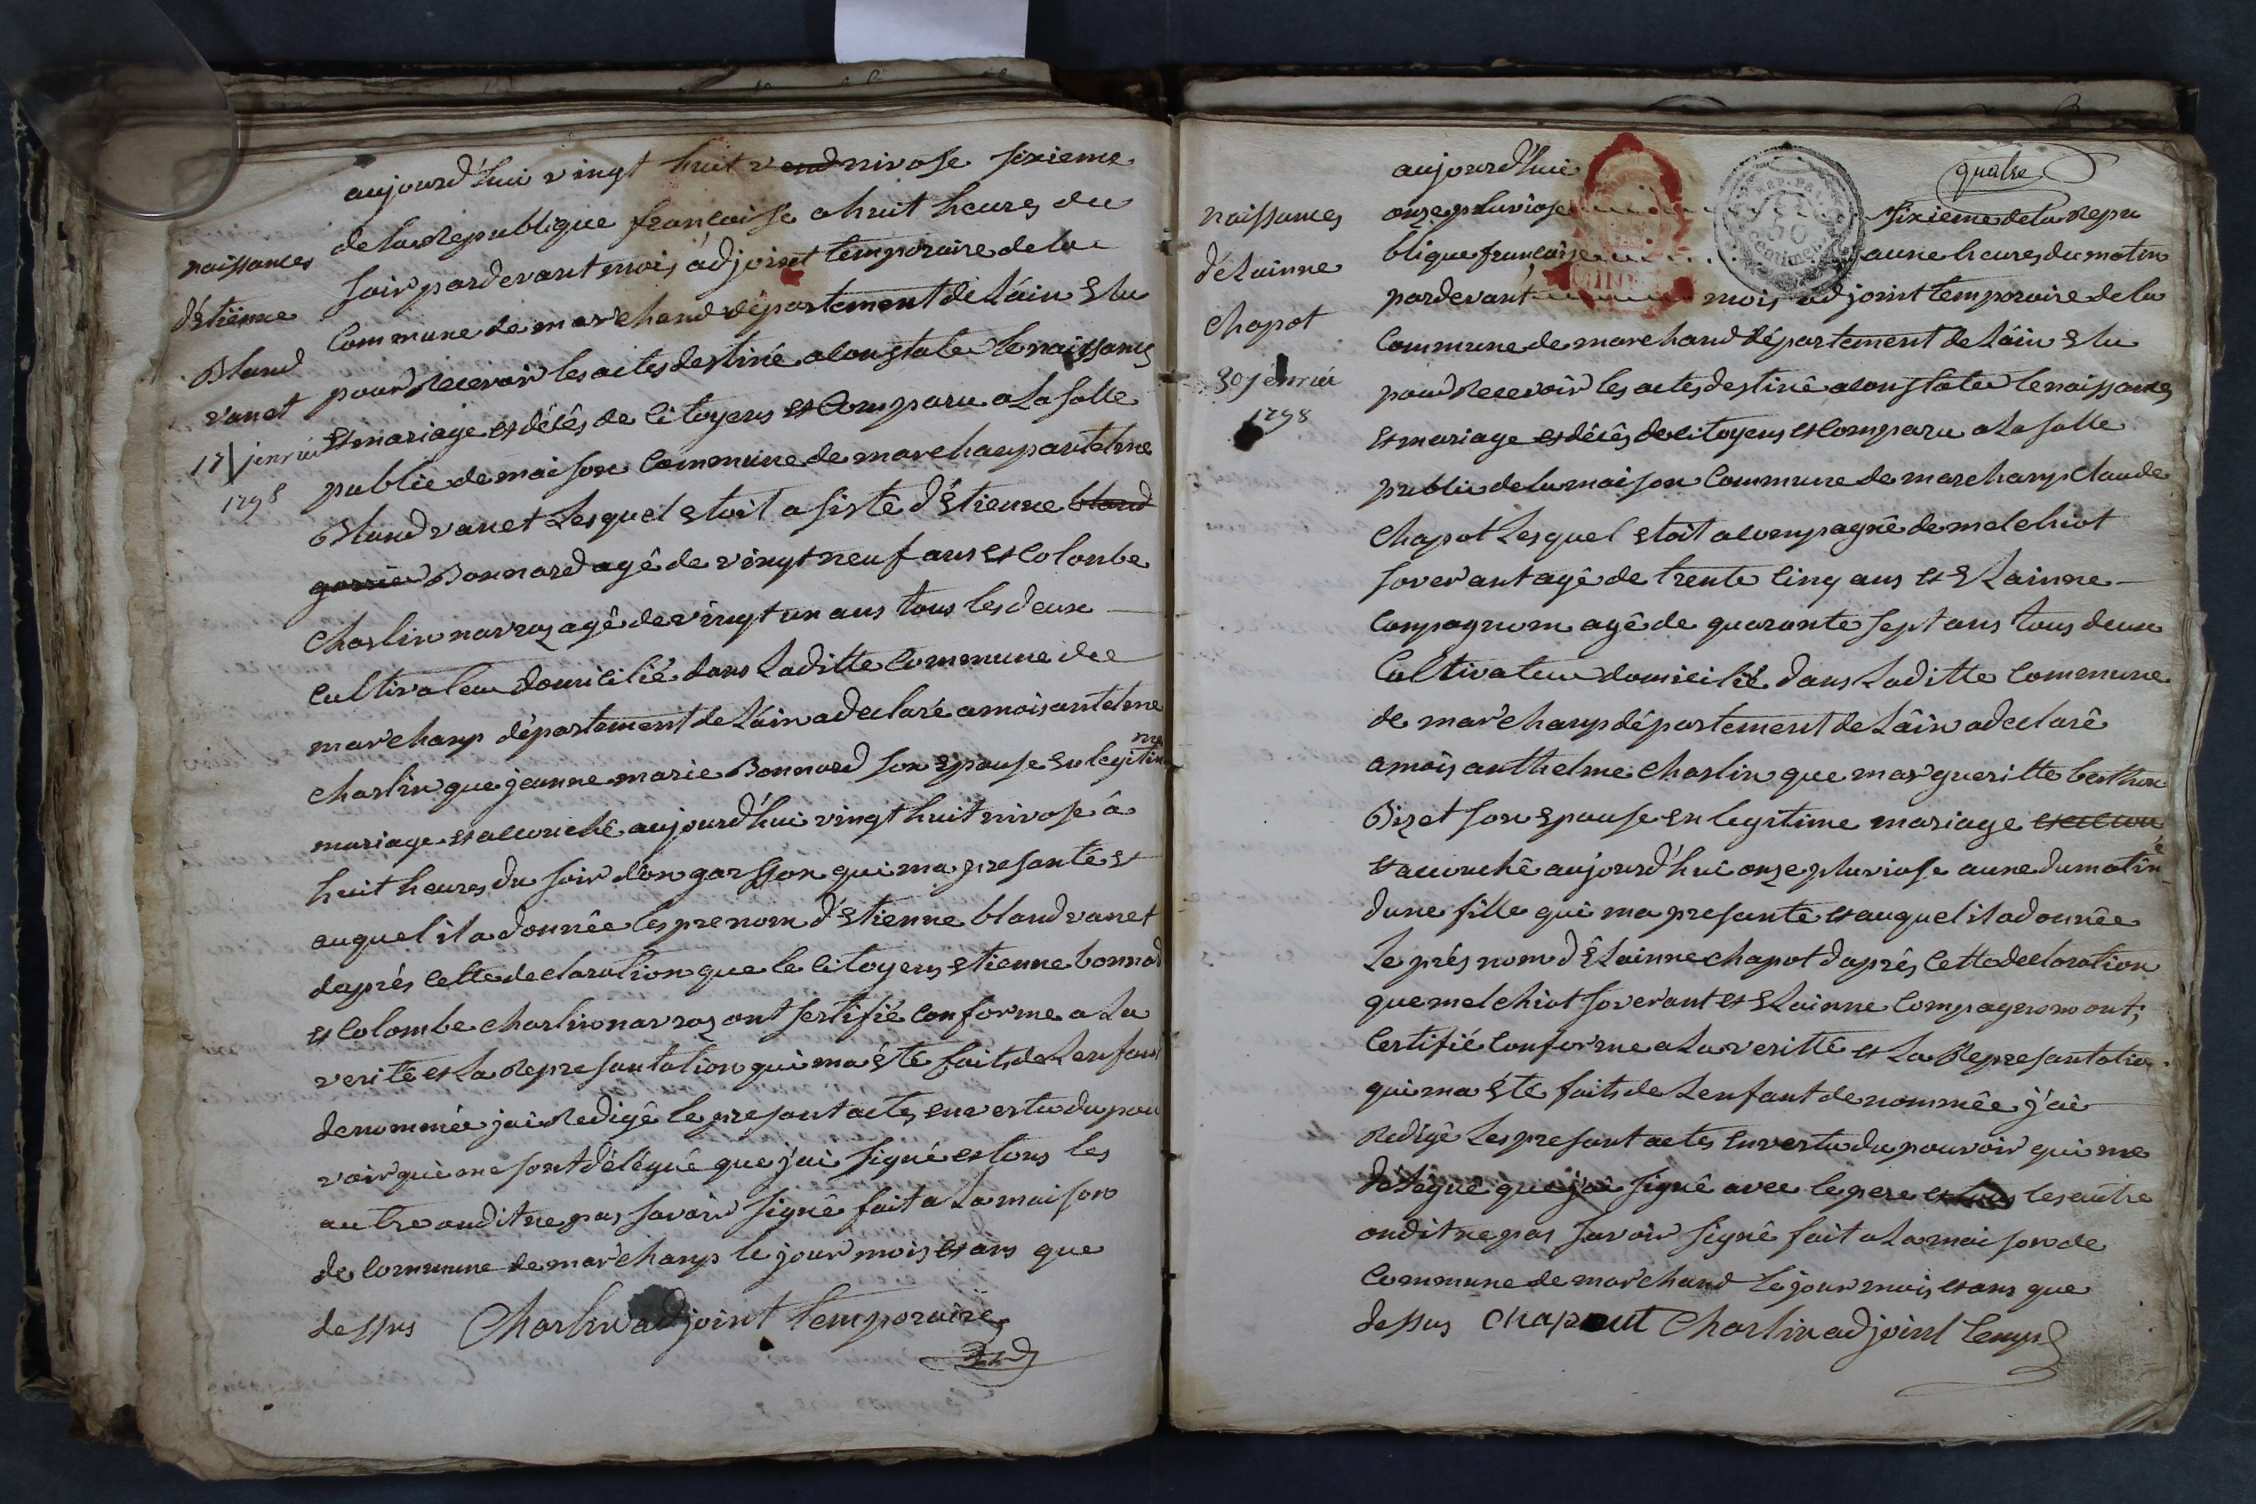 naissances
d'étienne
Bland
vanet
17 jenvié
1798
aujourd'hui vingt huit vend nivose sixieme
de la Republique françaisse a huit heures du
soir pardevant mois adjoint temporaire de la
Commune de marchand département de L'áin Elu
pour Recevoir les actes destiné a constate le naissances
et mariage et décês de Citoyens et Comparu a La salle
public de maison Commune de marchamp antelme
Bland vanet Lesquel Etoit asistê d'Etienne bland
gorrie Bonnard agê de vingt neuf ans et Colonbe
Charlin navraz agê de vingt un ans tous les deux
Cultivateu domicilié dans Laditte Commune de
marchamp département de L'áin a declaré a mois antelme
me
Charlin que jeanne marie Bonnard son Epouse En legitim
mariage et acouchê aujourd'hui vingt huit nivose â
huit heures du soir d'on garsson qui ma presantê Et
auquel il a donnêe les prenom d'Etienne bland vanet
daprés Cette declaration que le Citoyens Etienne bonnad
et Colombe charlin navraz ont sertifié Conforme a La
verité et La Represantation qui ma été faits de Lenfant
denommée jai Redigê le presant actes en vertu du pou
voir qui me sont délégué que j'ai signé et tous les
autre ondit ne pas savoir signê fait a La maison
de Commune de marchamp le jour mois et ans que
dessus Charlin adjoint temporaire
quatre
naissances
d'éLainne
Chapot
30 jenvrié
1798
REP. FRA.
50
centimes
aujourd'hui
onze pluviose sixieme de la Repu
blique française a une heures du matin
pardevant mois adjoint temporaire de la
Commune de marchand département de L'áin Elu
pour Recevoir les actes destinê a constater le naissances
et mariage et décês de citoyens et Comparu a La salle
public de la maison Commune de marchamp Claude
Chapot Lesquel Etoit acompagnê de melchiot
soverant agê de trente Cinq ans et ELainne
Compagnom agê de quarante sept ans tous deux
Cultivateu domicilié dans Laditte Commune
de marchamp département de L'áin a declarê
a mois anthelme Charlin que margueritte berthon
Bizet son Epouse En legitime mariage
et acouchê aujourd'hui onze pluviose a une du matin
dune fille qui ma presantê et auquel il a donnêe
Le prés nom d'ELainne chapot daprés Cette declaration
que melchiot soverant et ELainne Compagnom ont;
Certifié Conforme a La veritté et La Represantation
qui ma été faits de Lenfant denommêe j'ai
Redigê Les presant actes En vertu du pouvoir qui me
délégué que j'ai signê avec le pere et tous les autre
ondit ne pas savoir signê fait a La maison de
Commune de marchand le jour mois et ans que
dessus Chapout Charlin adjoint temp